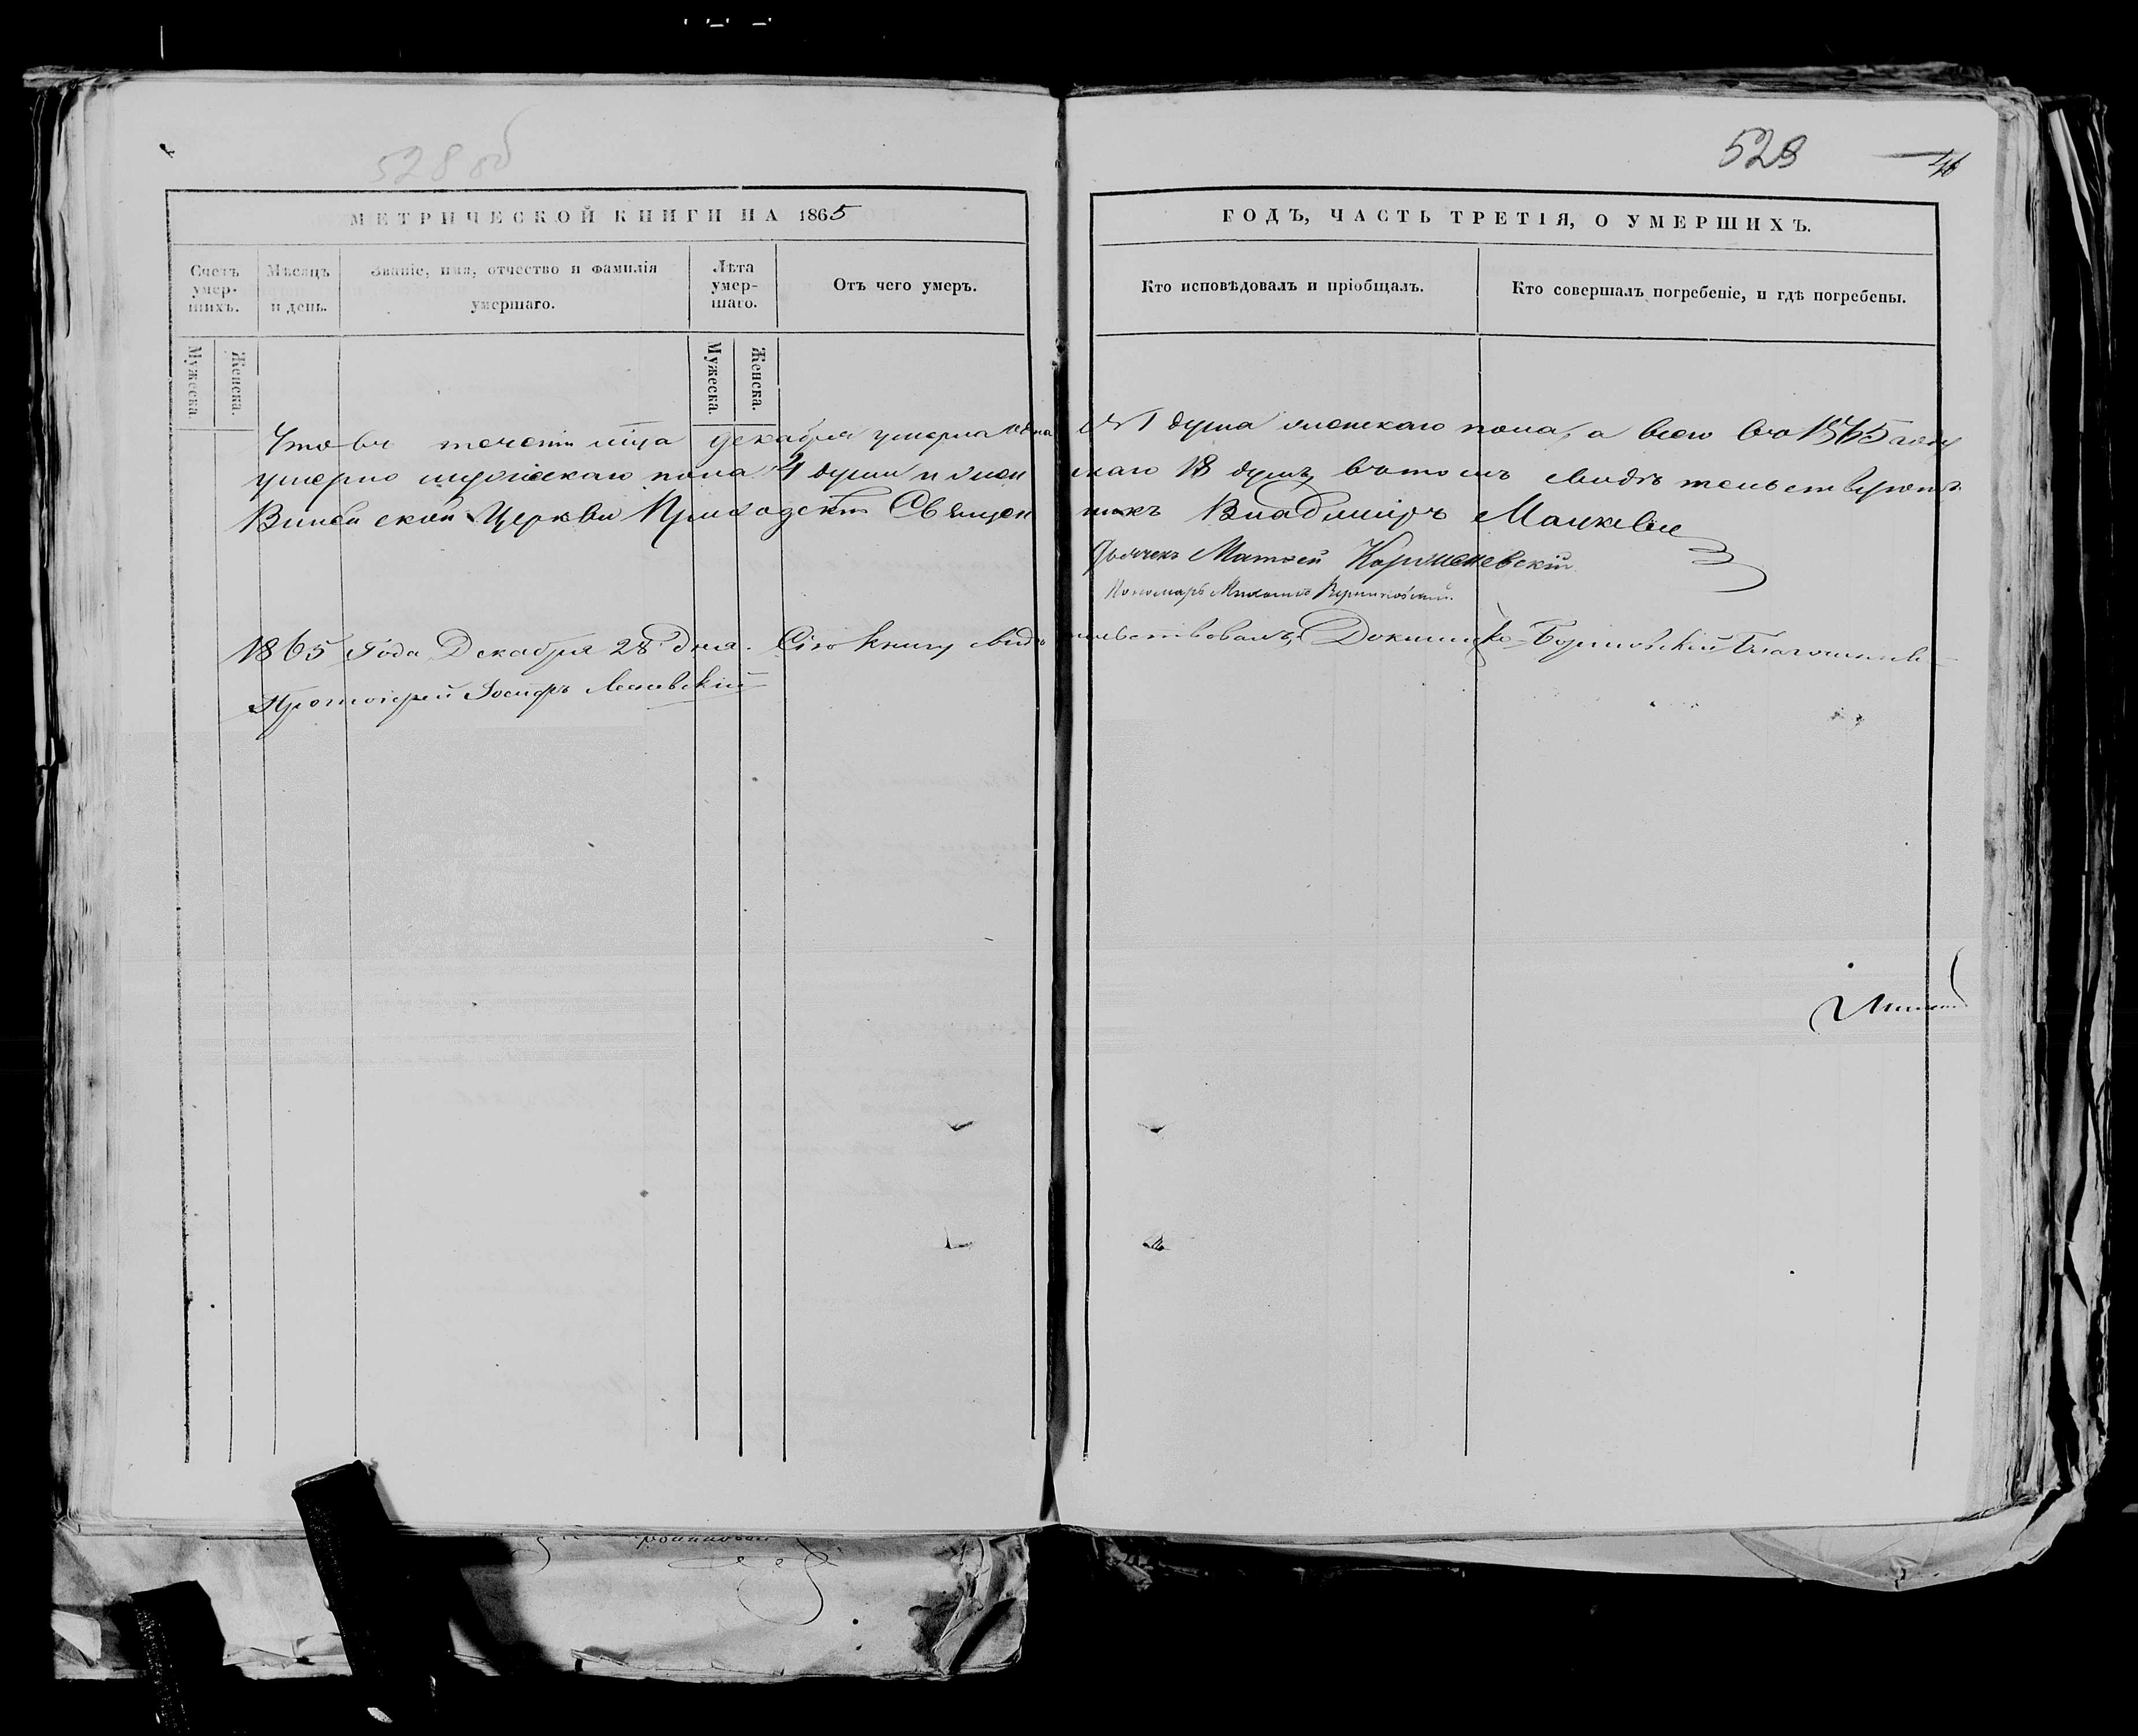 528 об
528
46
МЕТРИЧЕСКОЙ КНИГИ НА 1865
ГОДЪ, ЧАСТЬ ТРЕТІЯ, О УМЕРШИХЪ.
Счетъ умер-
шихъ.
Мѣсяцъ
и день.
Званіе, имя, отчество и фамилія
умершаго.
Лѣта
умер-
шаго.
Отъ чего умеръ.
Кто исповѣдовалъ и пріобщалъ.
Кто совершалъ погребеніе, и гдѣ погребены.
Мужеска.
Женска.
Мужеска.
Женска.
Что въ теченіи мѣца декабря умерла одна душа женскаго пола, а всего во 1865 году
умерло мужескаго пола 4 души и женскаго 18 душъ въ томъ свидѣтельствуютъ
Церкви Приходскій Священникъ Владиміръ
Дьячекъ Матѳей
Пономарь
1865 Года Декабря 28 дня. Сію книгу свидѣтельствовалъ, Докшицко-Борисовскій Благочинный
Протоіерей Іосифъ